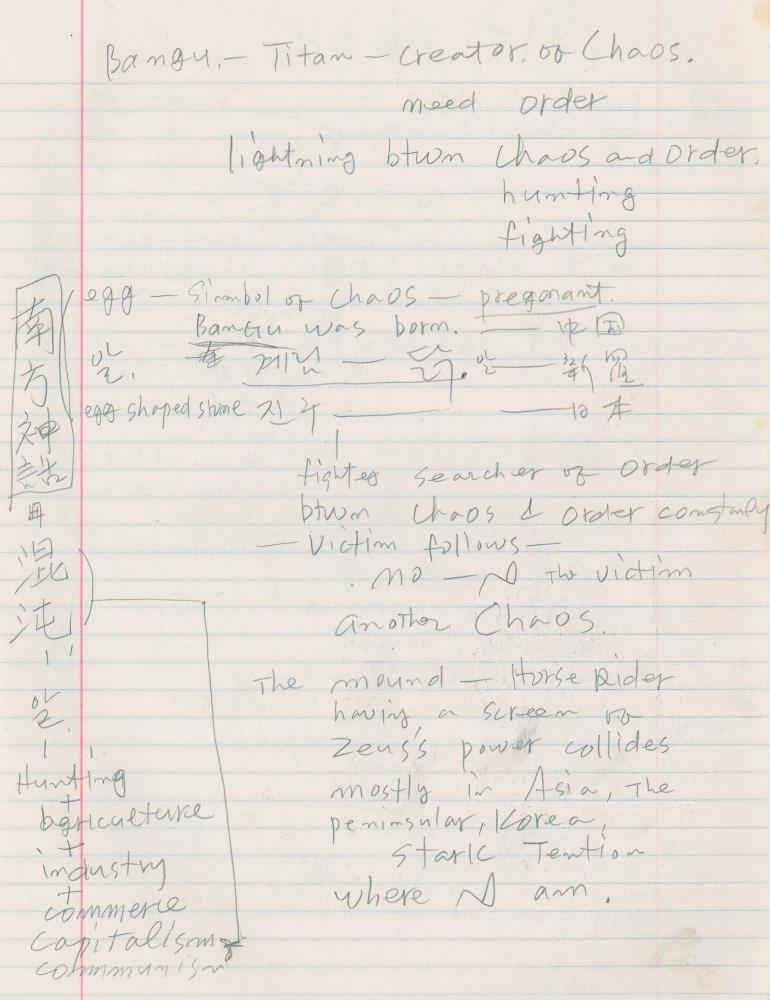 Bangu. — Titan — creator. of Chaos.
need order
lightning btwn Chaos and order.
hunting
fighting
egg — Simbol of Chaos — pregonant.
BanGu was born. —— 中国
알. 계림 —— 닭. 알 —— 新羅
egg shaped stone 진주 —— —— 日本
fighter searcher of order
btwn Chaos & order constantly
— Victim follows —
no — N the victim
another Chaos.
The mound — Horse Rider
having a screen of
Zeus's power collides
mostly in Asia, The
peninsular, Korea,
stark Tention
where N am.
南方神話
混沌
알.
Hunting
+
agriculture
+
industry
+
commerce
capitalism
communism